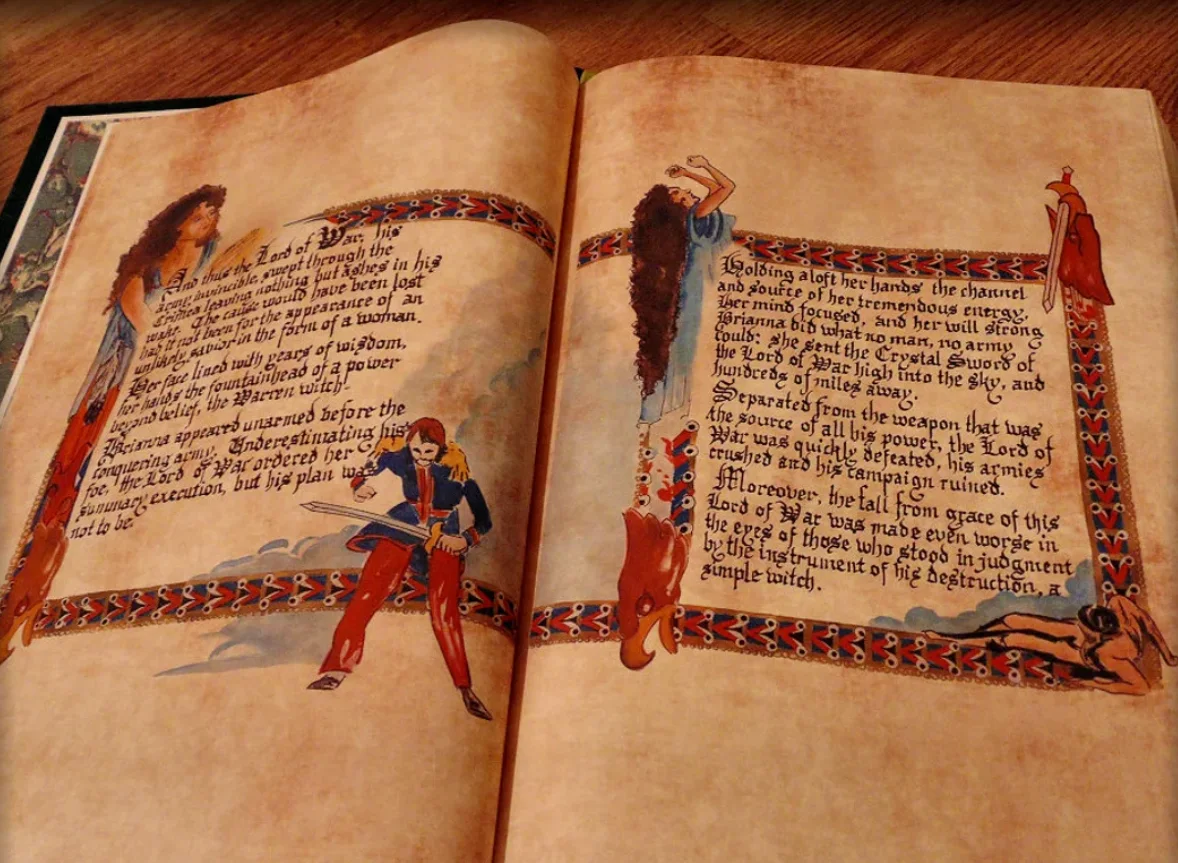 And thus the Lord of War, his
army invincible, swept through the
Crimea leaving nothing but ashes in his
wake. The cause would have been lost
had it not been for the appearance of an
unlikely savior in the form of a woman.
Her face lined with years of wisdom,
her hands the fountainhead of a power
beyond belief, the Warren witch!
Brianna appeared unarmed before the
conquering army. Underestimating his
foe, the Lord of War ordered her
summary execution, but his plan was
not to be.
Holding aloft her hands the channel
and source of her tremendous energy,
Her mind focused, and her will strong
Brianna did what no man, no army
could: she sent the Crystal Sword of
the Lord of War high into the sky, and
hundreds of miles away.
Separated from the weapon that was
the source of all his power, the Lord of
War was quickly defeated, his armies
crushed and his campaign ruined.
Moreover, the fall from grace of this
Lord of War was made even worse in
the eyes of those who stood in judgment
by the instrument of his destruction, a
simple witch.